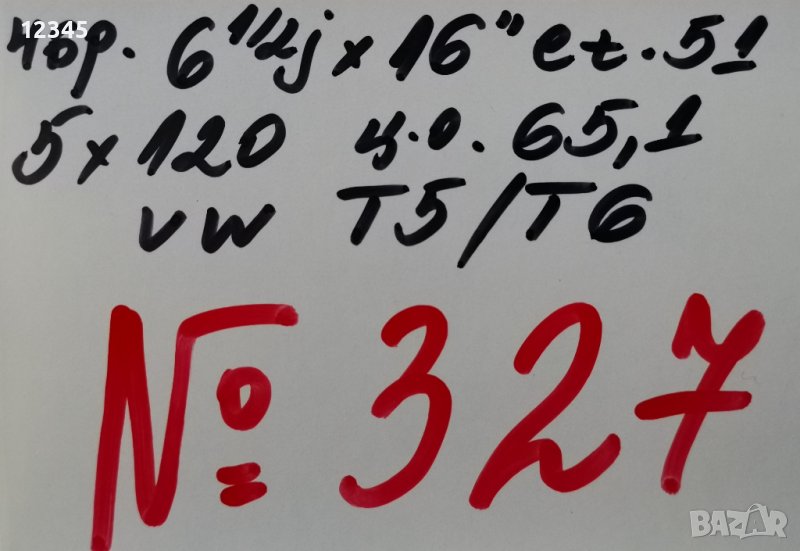 12345
чор. 6 1/2j x 16" et. 51
5 x 120 ц.о. 65,1
VW T5/T6
№ 327
BAZAR